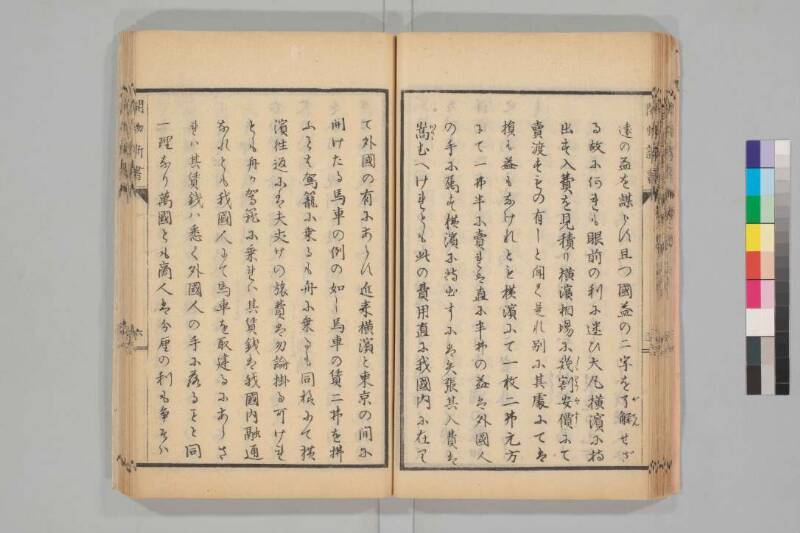 遠の益を謀らす且つ國益の二字を了解せざ
る故に何れも眼前の利に迷ひ大凡横濱に持
出す入費を見積り横濱相場に幾割安價にて
賣渡すもの有しと聞くそれ別に其處にては
損も益もなけれとも横濱にて一枚二弗元方
にて一弗半に賣れは直に半弗の益は外國人
の手に落す横濱に持出すには矢張其入費は
嵩むへけれとも此の費用直に我國内に在り
て外國の有にあらす近来横濱と東京の間に
開けたる馬車の例の如し馬車の賃二弗を拂
ふも駕籠に乗るも舟に乗るも同様にて横
濱往返には夫丈けの旅費は勿論掛る可けれ
とも舟か駕籠に乗れは其賃錢は我國内融通
なれとも我國人にて馬車を取建るにあらさ
れは其賃錢は悉く外國人の手に落ること同
一理なり萬國とも商人は分厘の利も争そい
開物新書
六